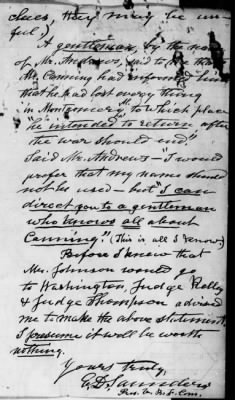 clues, they may be use-
ful),
A gentleman, by the name
of Mr. Andrews, said to me that
Mr. Canning had informed him
that he had lost every thing
in Montgomery Ala to which place
"he intended to return after
the war should end."
Said Mr. Andrews— I would
prefer that my name should
not be used— but "I can
direct you to a gentleman
who knows all about
Canning." (This is all I know)
Before I knew that
Mrs. Johnson would go
to Washington, Judge Kelly
& Judge Thompson advised
me to make the above statement.
I presume it will be worth
nothing.
Yours truly,
G. D. Saunders